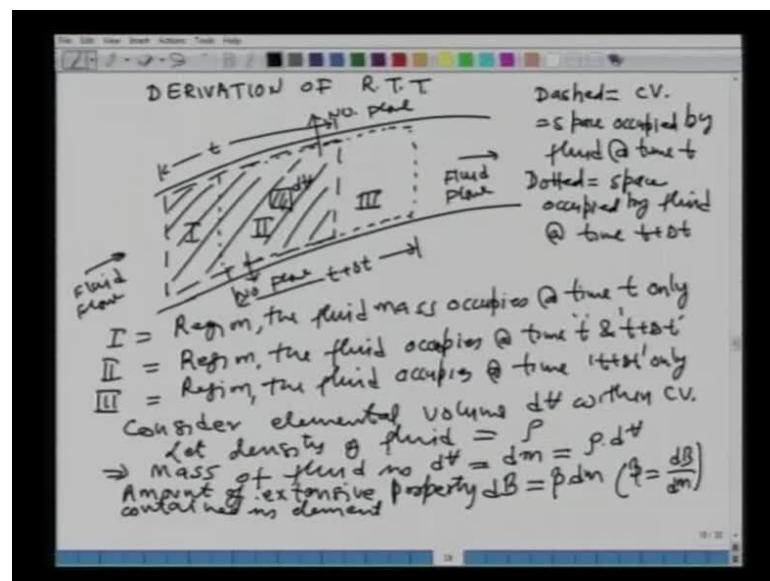 File Edit View Insert Actions Tools Help
DERIVATION OF R.T.T
NO. plane
t
Dashed = CV.
= space occupied by
fluid @ time t
Dotted = space
occupied by fluid
@ time t+Δt
Fluid
plane
I
II
III
dV
Fluid
flow
NO plane
t+Δt
I = Region, the fluid mass occupies @ time t only
II = Region, the fluid occupies @ time 't' & 't+Δt'
III = Region, the fluid occupies @ time 't+Δt' only
Consider elemental volume dV within CV.
Let density of fluid = ρ
⇒ Mass of fluid in dV = dm = ρ.dV
Amount of extensive property dB = β.dm (β = dB/dm)
contained in element